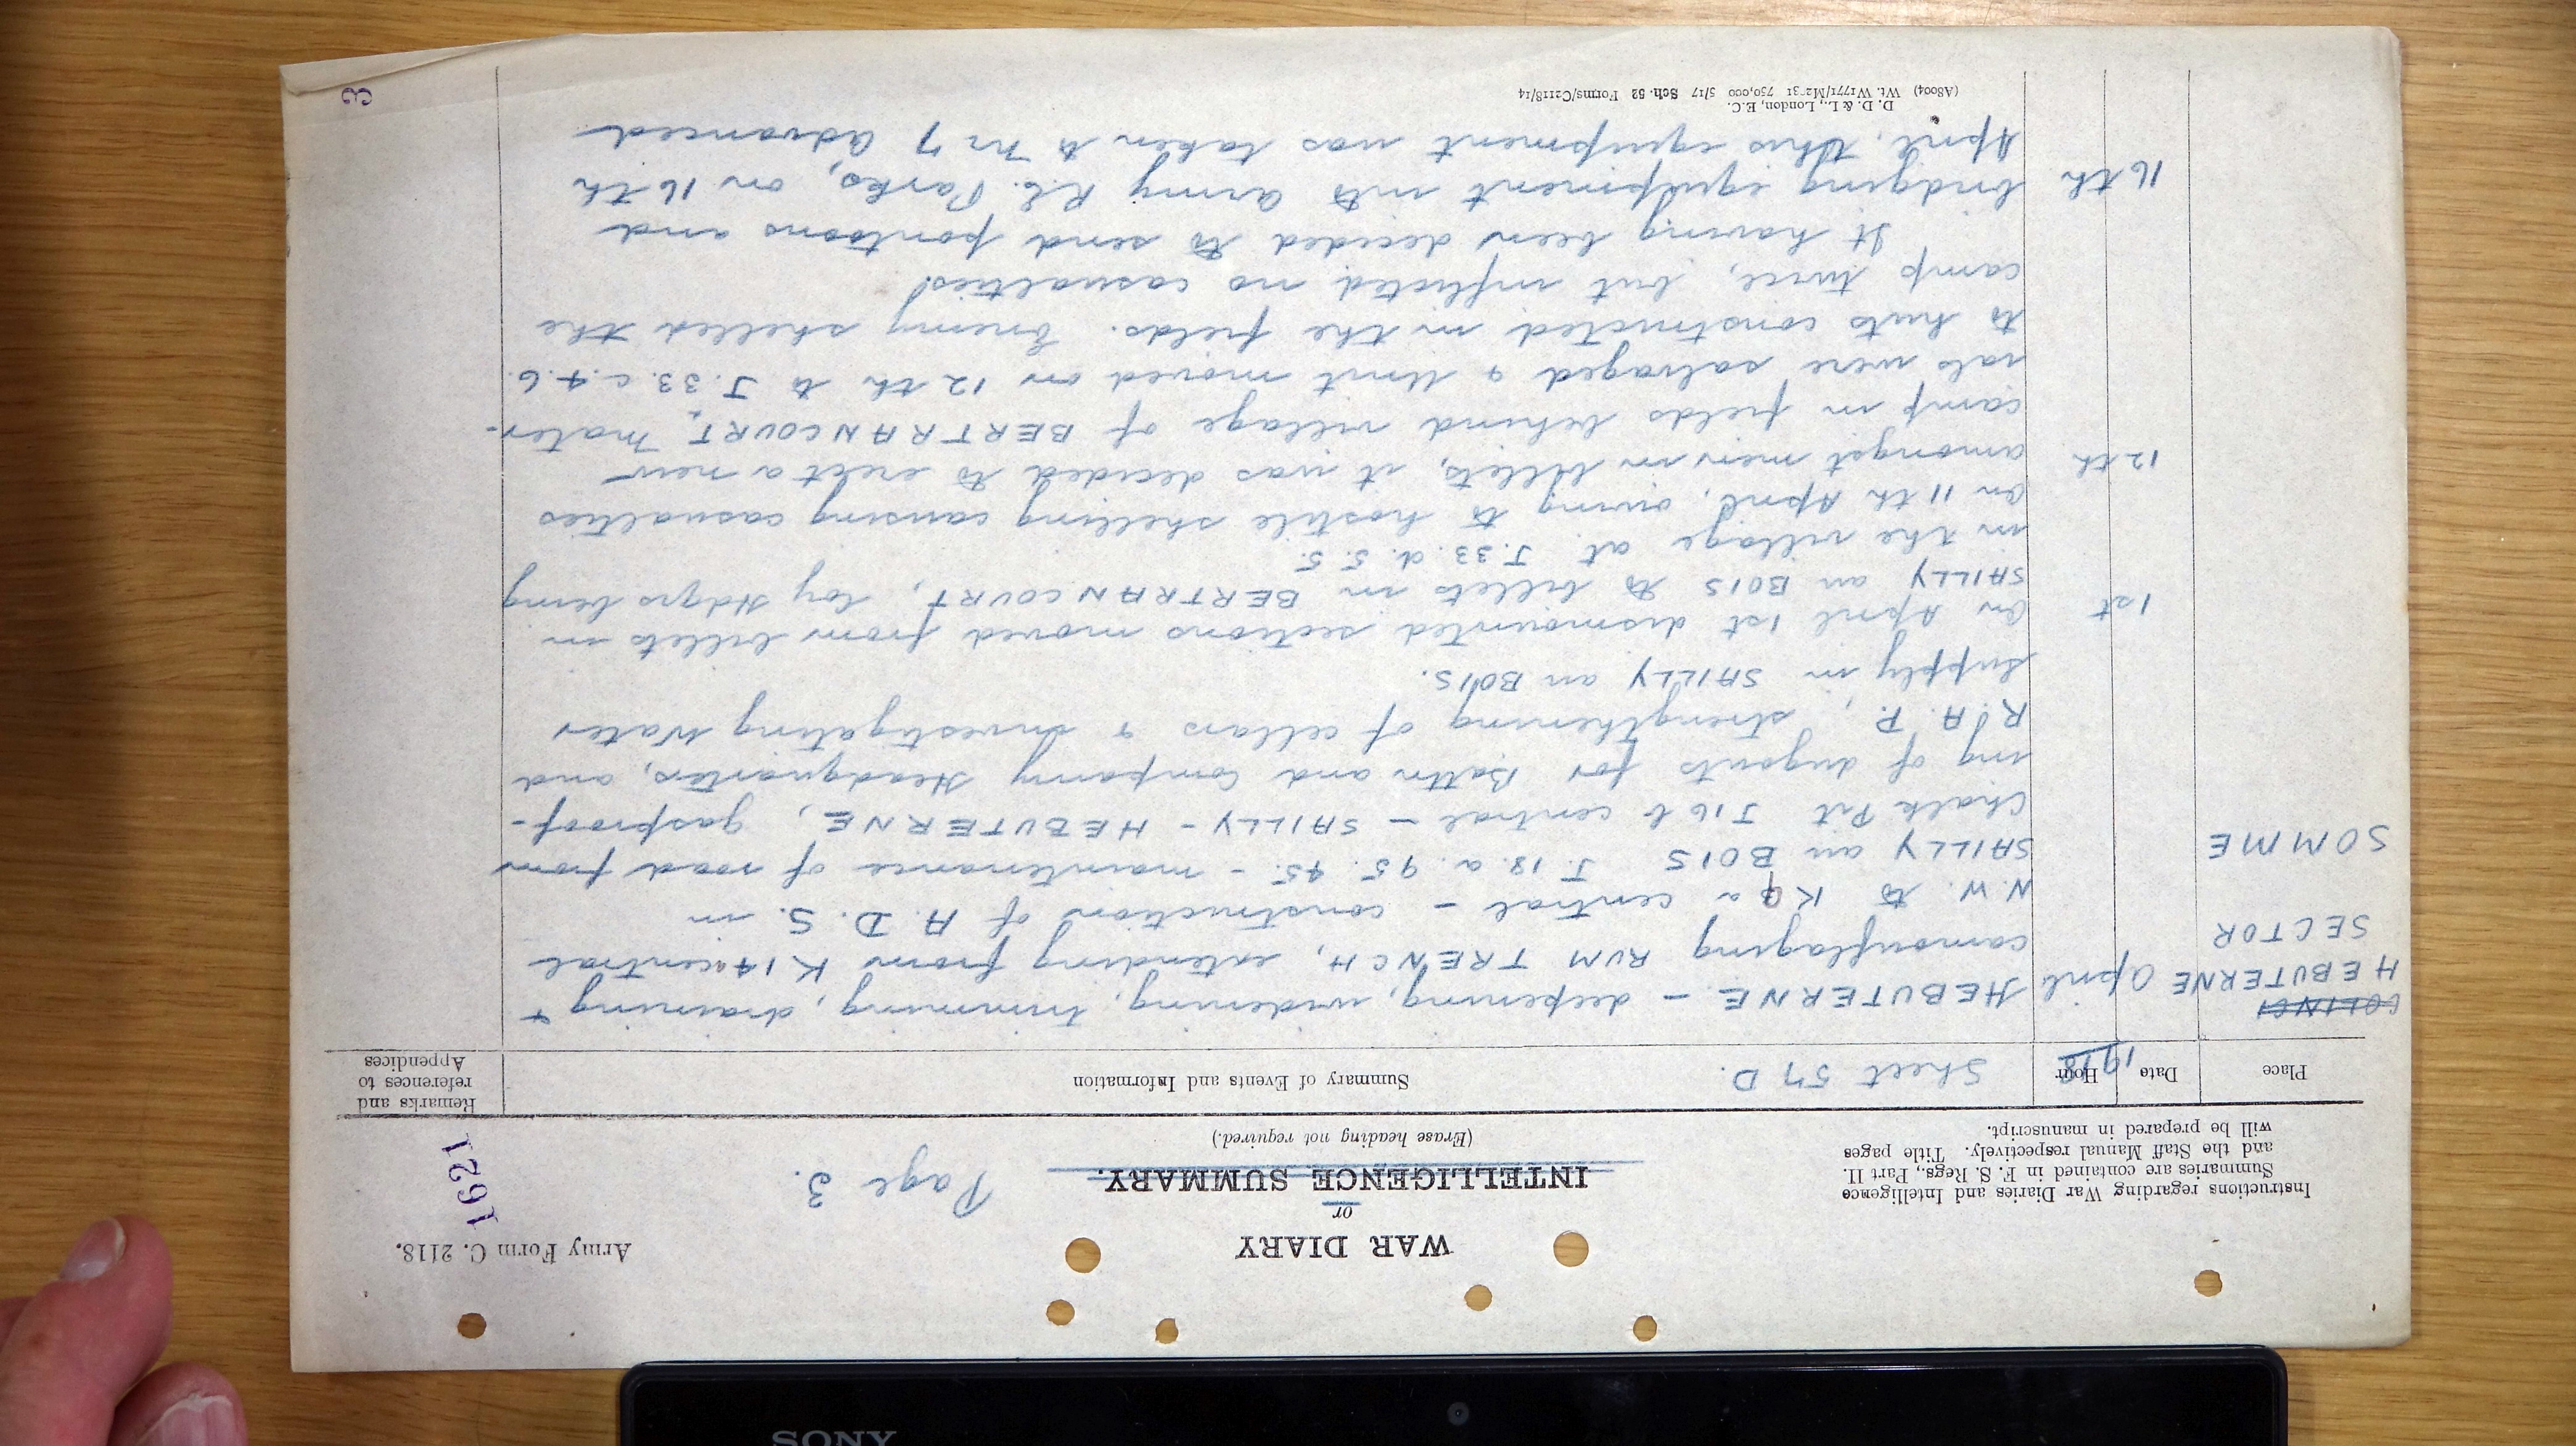 Army Form C. 2118.
WAR DIARY
or
INTELLIGENCE SUMMARY.
(Erase heading not required.)
Page 3.
1621
Instructions regarding War Diaries and Intelligence
Summaries are contained in F. S. Regs., Part II.
and the Staff Manual respectively. Title pages
will be prepared in manuscript.
Place
Date
Hour
1918
Sheet 57 D.
Summary of Events and Information
Remarks and
references to
Appendices
COLINC
HEBUTERNE
SECTOR
SOMME
April
HEBUTERNE - deepening, widening, trimming, draining &
camouflaging RUM TRENCH, extending from K14a central
N.W. to K9a central - construction of A.D.S. in
SAILLY au BOIS J.18.a.95.45. - maintenance of road from
Chalk Pit J16b central - SAILLY - HEBUTERNE, gasproof-
ing of dugouts for Battn and Company Headquarters, and
R.A.P., strengthening of cellars & investigating Water
Supply in SAILLY au BOIS.
1st
On April 1st dismounted sections moved from billets in
SAILLY au BOIS to billets in BERTRANCOURT, Coy Hdqrs being
in the village at J.33.d.5.5.
On 11th April, owing to hostile shelling causing casualties
12th
amongst men in billets, it was decided to erect a new
camp in fields behind village of BERTRANCOURT. Mater-
ials were salvaged & Unit moved on 12th to J.33.c.4.6.
to huts constructed in the fields. Enemy shelled the
camp twice, but inflicted no casualties.
It having been decided to send pontoons and
16th
bridging equipment into Army R.E. Parks, on 16th
April, this equipment was taken to No 7 Advanced
(A8004) Wt. W1771/M2-31 750,000 5/17 Sch. 52 Forms/C2118/14
D. D. & L., London, E.C.
3
SONY